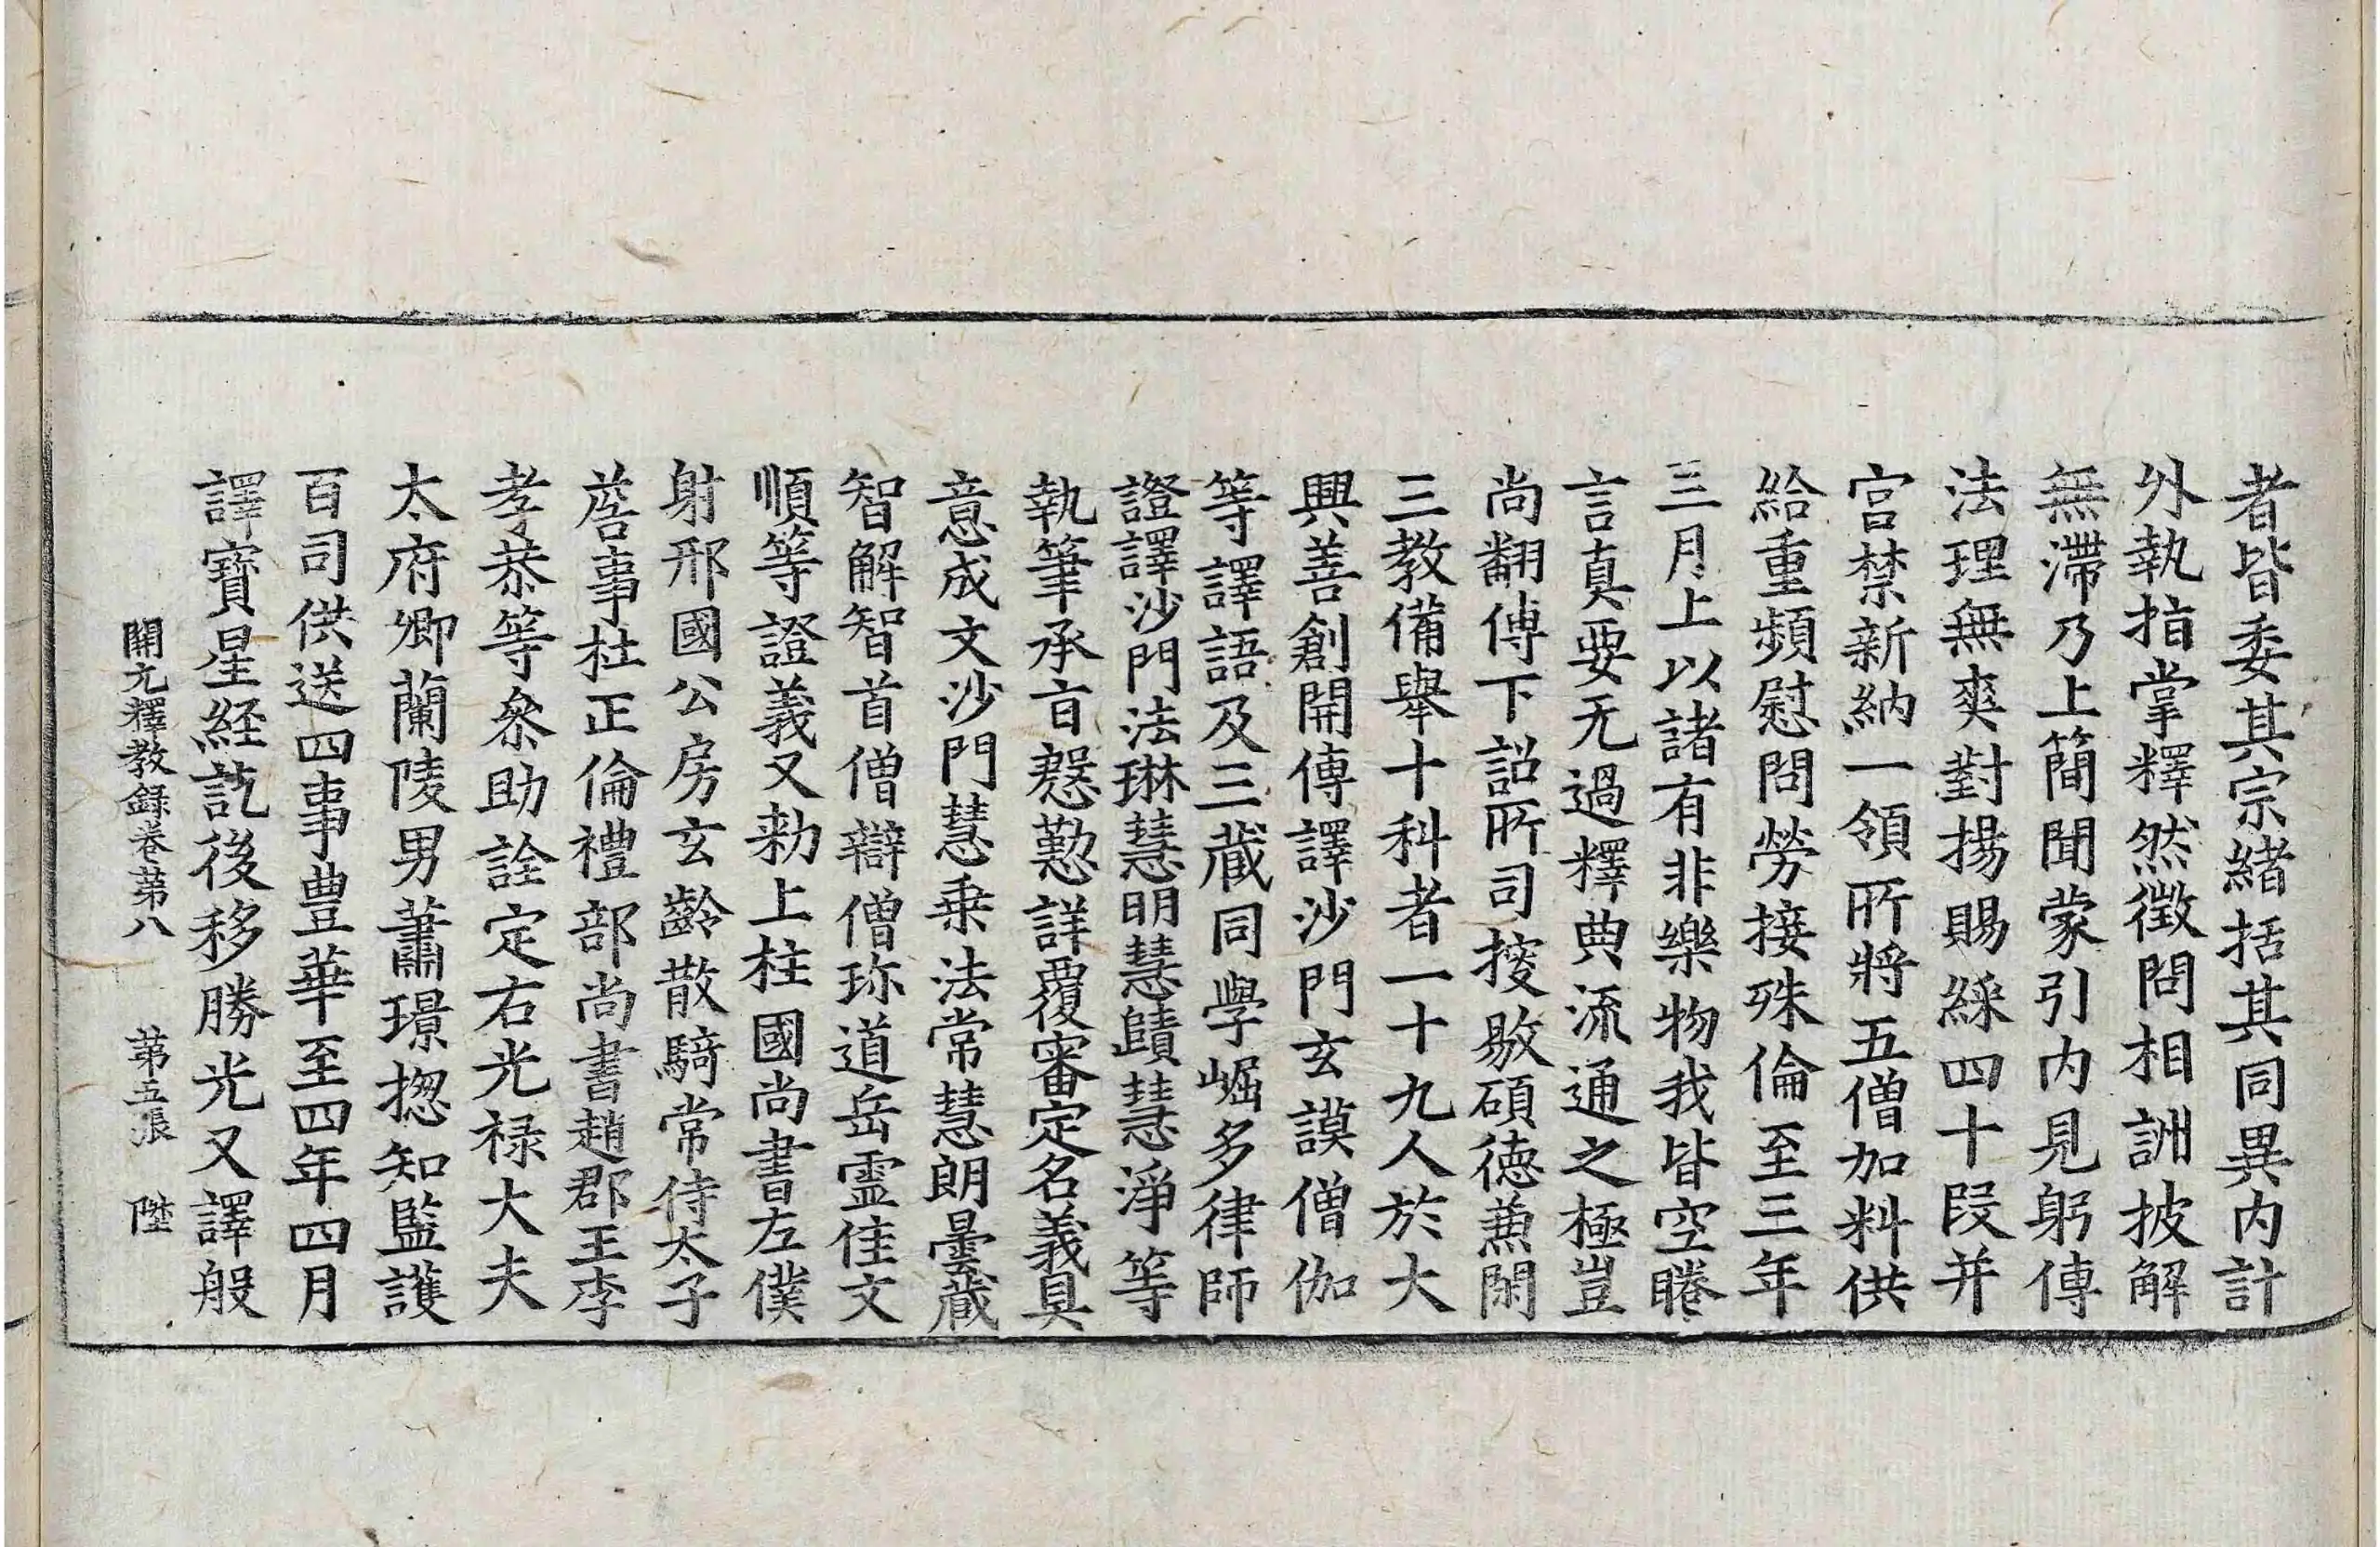 者皆委其宗緒括其同異内計
外執指掌釋然徴問相詶披解
無滯乃上簡聞蒙引内見躬傳
法理無爽對揚賜綵四十段并
宫禁新納一領所將五僧加料供
給重頻慰問勞接殊倫至三年
三月上以諸有非樂物我皆空睠
言真要无過釋典流通之極豈
尚翻傳下詔所司搜敭碩徳兼閑
三教備舉十科者一十九人於大
興善創開傳譯沙門玄謨僧伽
等譯語及三藏同學崛多律師
證譯沙門法琳慧明慧賾慧淨等
執筆承旨慇懃詳覆審定名義具
意成文沙門慧乗法常慧朗曇藏
智解智首僧辯僧珎道岳霊佳文
順等證義又勑上柱國尚書左僕
射邢國公房玄齡散騎常侍太子
詹事杜正倫禮部尚書趙郡王李
孝恭等叅助詮定右光禄大夫
太府卿蘭陵男蕭璟揔知監護
百司供送四事豊華至四年四月
譯寶星経訖後移勝光又譯般
開元釋教録卷苐八 苐五張 陞